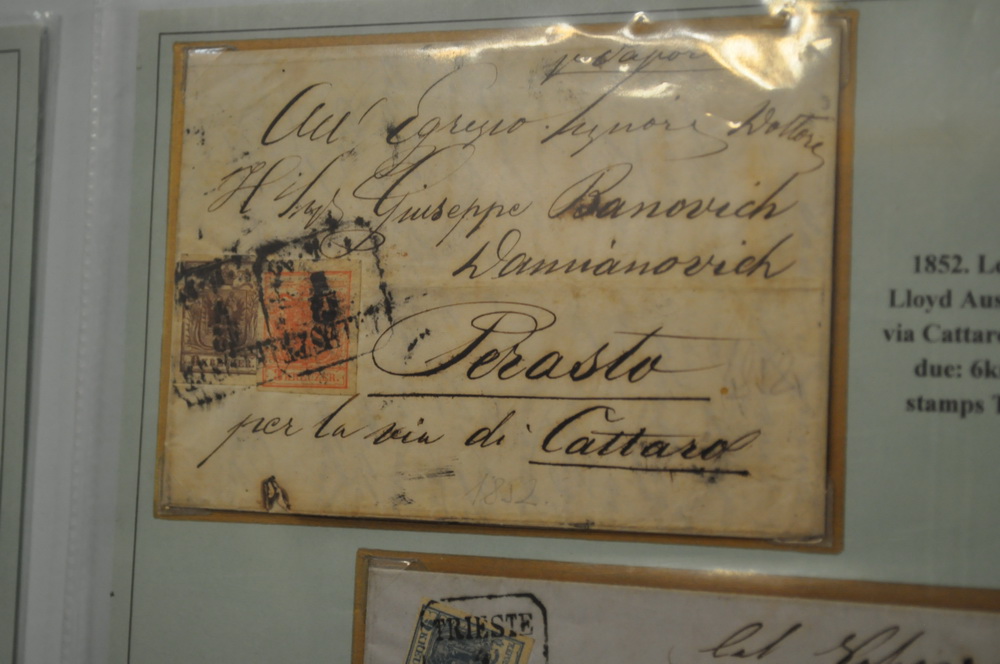 p Vapor
All' Egregio Signore Dottore
Giuseppe Banovich
Damianovich
Perasto
per la via di Cattaro
1852
KREUZER
1852. Le
Lloyd Aus
via Cattaro
due: 6k
stamps T
TRIESTE